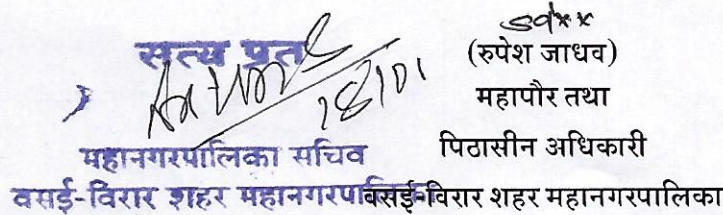 सत्य प्रत
18/01
महानगरपालिका सचिव
वसई-विरार शहर महानगरपालिका
sdxx
(रुपेश जाधव)
महापौर तथा
पिठासीन अधिकारी
वसई-विरार शहर महानगरपालिका